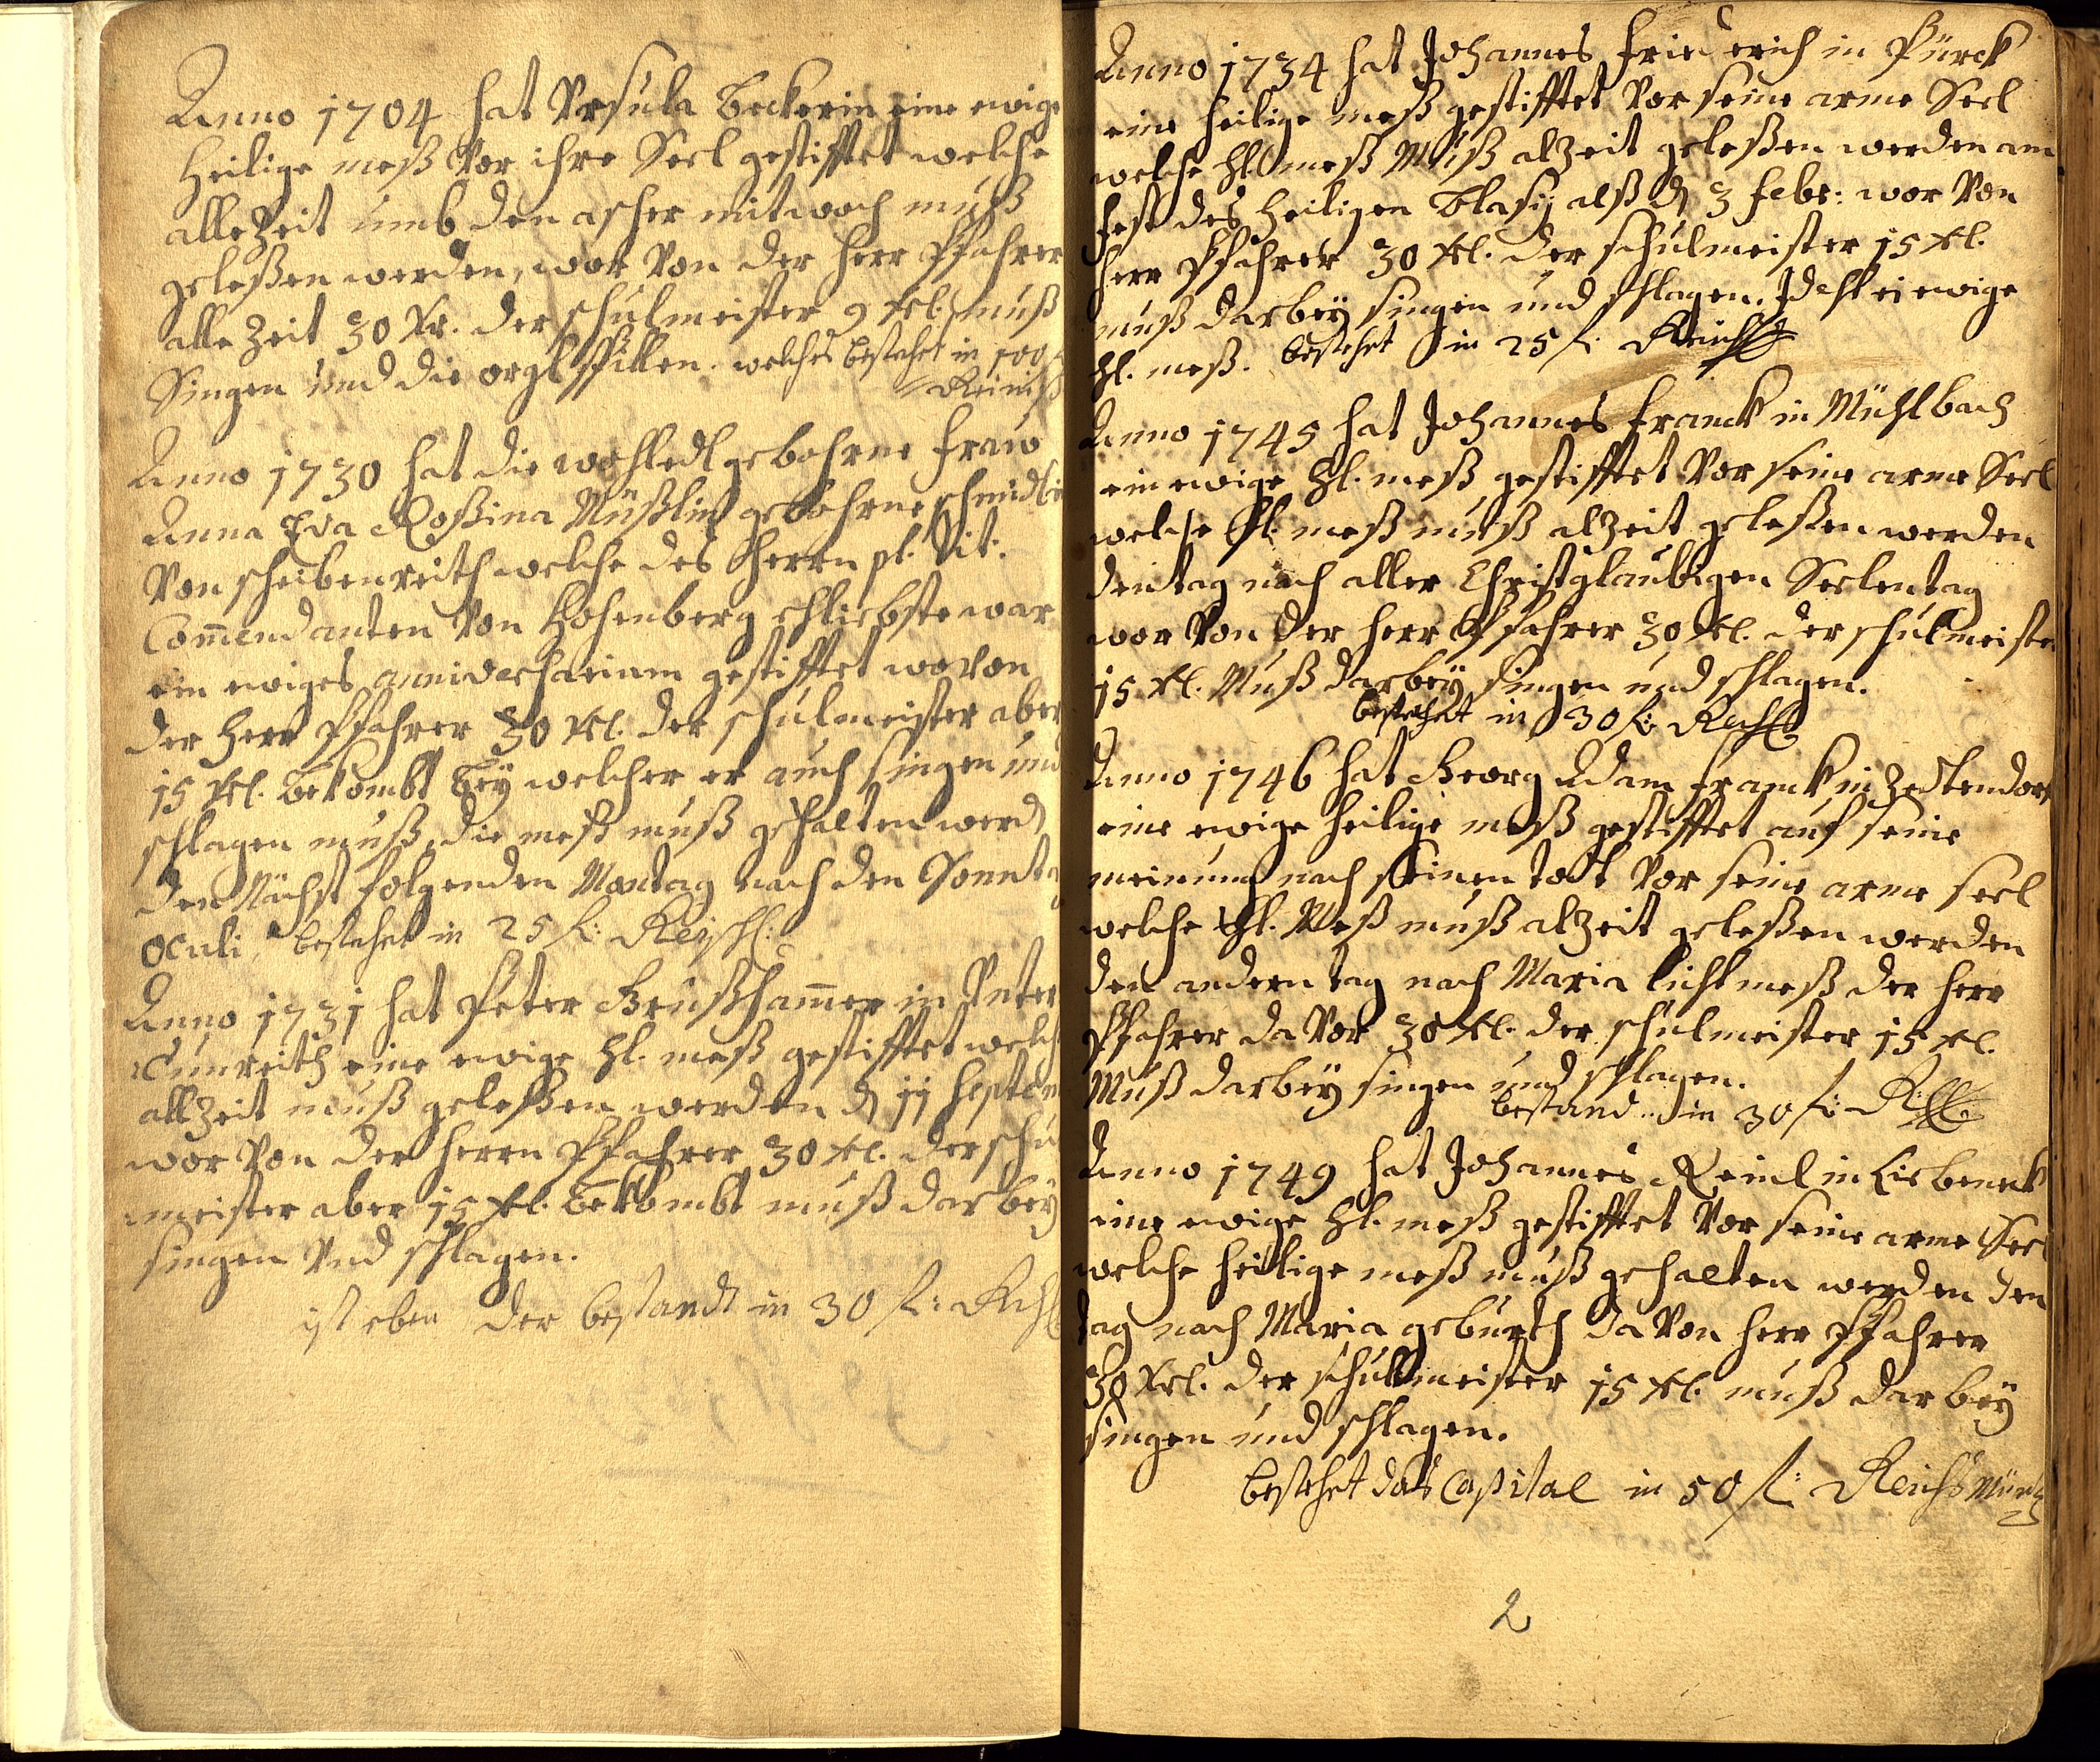 Anno 1704 hat Vrsula Beckerin eine ewige
Heilige meß Vor ihre Seel gestifftet welche
alle Zeit umb den ascher mitwoch muß
geleßen werden, wor Von der Herr Pfahrer
alle Zeit 30 Xr. der schulmeister 9 xl. muß
Singen und die orgl spillen. welches bestehet in 100
Reinis
Anno 1730 hat die wohledl gebohrne Fraw
Anna Eva Roßina Müßlin gebohrne schmidlin
Von scheibenreith welche des Herrn pl. Tit:
Com̄endanten Von Hohenberg ehliebste war
ein ewiges anniversarium gestifftet wovon
der Herr Pfahrer 30 xl. der schulmeister aber
15 xl. bekombt bey welcher er auch singen und
schlagen muß, die meß muß gehalten werd
den Nächst folgenden Montag nach den Sonnta
Oculi, bestehet in 25 fl: Reischl:
Anno 1731 hat Peter Grußham̄er in Unter
Cunreith eine ewige Hl. meß gestifftet welch
allZeit muß geleßen werden d 11 septem
wor Von der Herrn Pfahrer 30 xl. der schu
meister aber 15 xl. bekombt muß dar bey
singen Vnd schlagen.
ist eben der bestandt in 30 fl: Rchl
Anno 1734 hat Johannes Friederich in Pürck
eine Heilige meß gestifftet Vor seine arme Seel
welche Hl. meß Muß alZeit geleßen werden am
Fest des Heiligen Blasij alß d 3 Febr: wor Von
Herr Pfahrer 30 xl. der schulmeister 15 xl.
muß darbey singen und schlagen. Idest ei ewige
Hl. meß. bestehet in 25 fl: Reichß
Anno 1745 hat Johannes Franck in Mühlbach
ein ewige Hl. meß gestifftet Vor seine arme Seel
welche Hl. meß muß alZeit geleßen werden
den tag nach aller Christglaubigen Seelen tag
wor Von der Herr Pfahrer 30 xl. der schulmeiste
15 xl. Muß darbey singen und schlagen.
bestehet in 30 fl: Rchß
Anno 1746 hat Georg Adam Franck in Zedtendor
eine ewige Heilige meß gestifftet auf seine
meinung nach seinen tott Vor seine arme seel
welche Hl. Meß muß alZeit geleßen werden
den andern tag nach Maria lichtmeß der Herr
Pfahrer da Vor 30 xl. der schulmeister 15 xl.
Muß darbey singen und schlagen.
bestand in 30 fl:
Anno 1749 hat Johannes Reinl in Liebeneck
eine ewige Hl. meß gestifftet Vor seine arme Seel
welche Heilige meß muß gehalten werden den
tag nach Maria geburth da Von Herr Pfahrer
30 Xrl. der schulmeister 15 xl. muß dar bey
singen und schlagen.
bestehet das Capital in 50 fl: Reichs Müntz
2